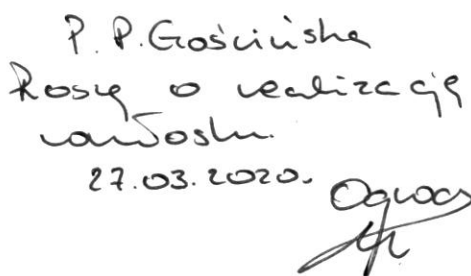 P. P. Gościńska
Proszę o realizację
wniosku.
27.03.2020.